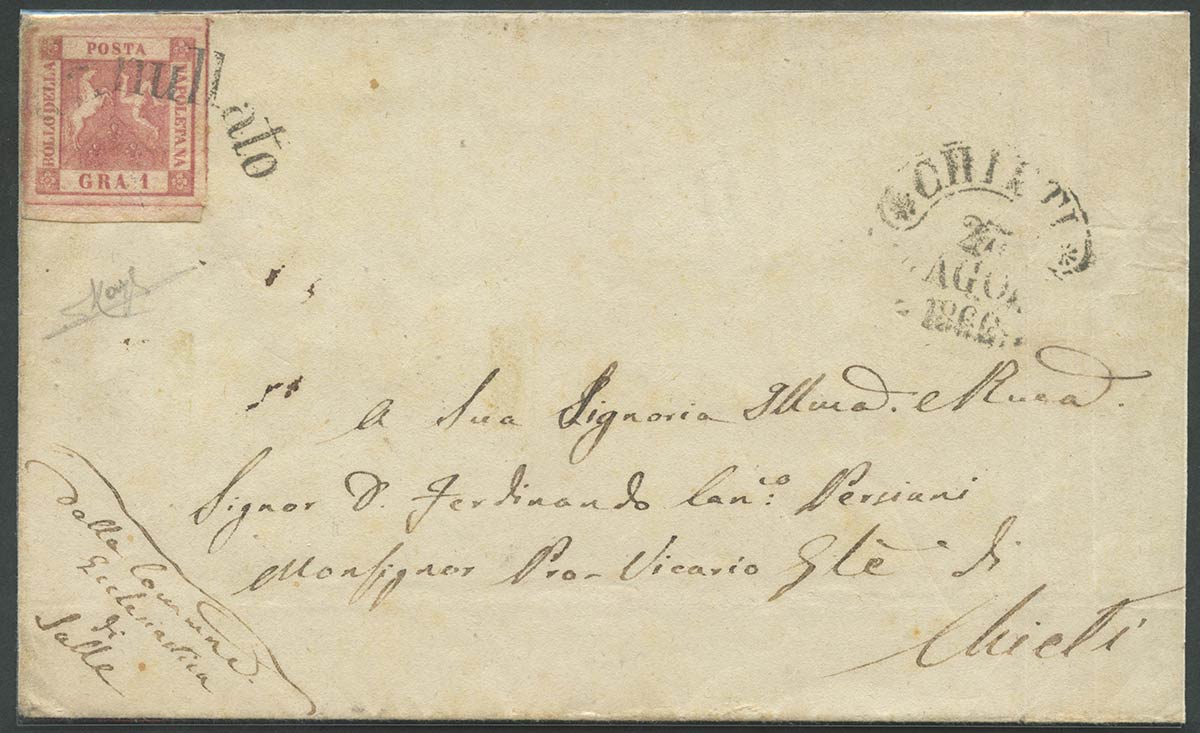 POSTA
NAPOLETANA
BOLLO DELLA
GRA 1
Annullato
CHIETI
27
AGO
186
A Sua Signoria Illma. e Rma.
Signor D. Ferdinando Can.co Persiani
Monsignor Pro-Vicario Gle di
Chieti
Dalla Comune
Ecclesiastica
di
Salle